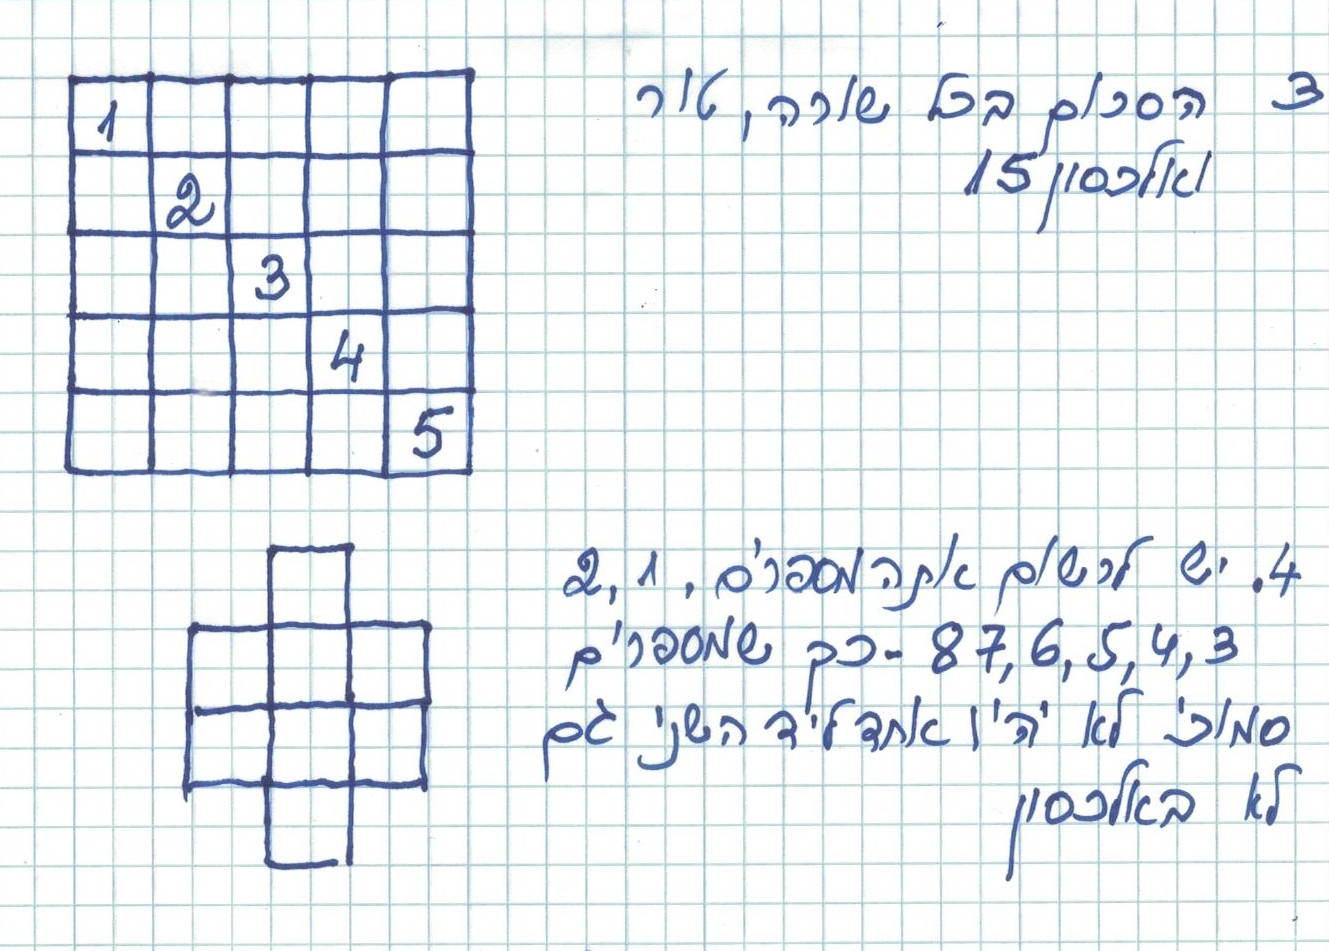 3 הסכום בכל שורה, טור
ואלכסון 15
1
2
3
4
5
4. יש לרשום את המספרים, 1, 2,
3, 4, 5, 6, 7 8 - כך שמספרים
סמוכי לא יהיו אחד ליד השני גם
לא באלכסון